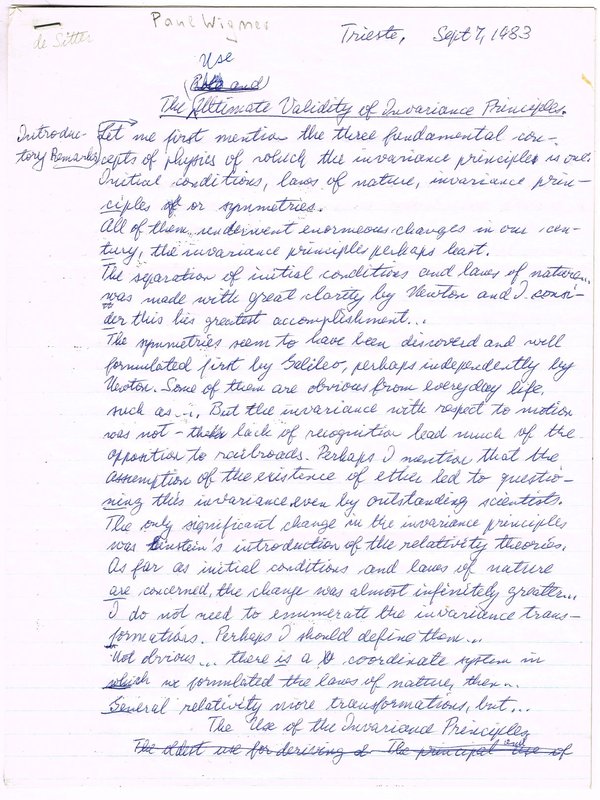 de Sitter
Paul Wigner
Trieste, Sept 7, 1983
Use
and
The Ultimate Validity of Invariance Principles.
Introduc-
tory Remarks
Let me first mention the three fundamental con-
cepts of physics of which the invariance principles is one.
Initial conditions, laws of nature, invariance prin-
ciples or symmetries.
All of them underwent enormeous changes in our cen-
tury, the invariance principles perhaps least.
The separation of initial conditions and laws of nature...
was made with great clarity by Newton and I consi-
der this his greatest accomplishment...
The symmetries seem to have been discoverd and well
formulated first by Galileo, perhaps independently by
Newton. Some of them are obvious from everyday life,
such as ... But the invariance with respect to motion
was not - lack of recognition lead much of the
opposition to railroads. Perhaps I mention that the
assumption of the existence of ether led to questio-
ning this invariance even by outstanding scientists.
The only significant change in the invariance principles
was Einstein's introduction of the relativity theories.
As far as initial conditions and laws of nature
are concerned, the change was almost infinitely greater...
I do not need to enumerate the invariance trans-
formations. Perhaps I should define them...
Not obvious... there is a coordinate system in
which we formulated the laws of nature, then...
General relativity more transformations, but...
The Use of the Invariance Principles
and
The oldest use for deriving The principal use of